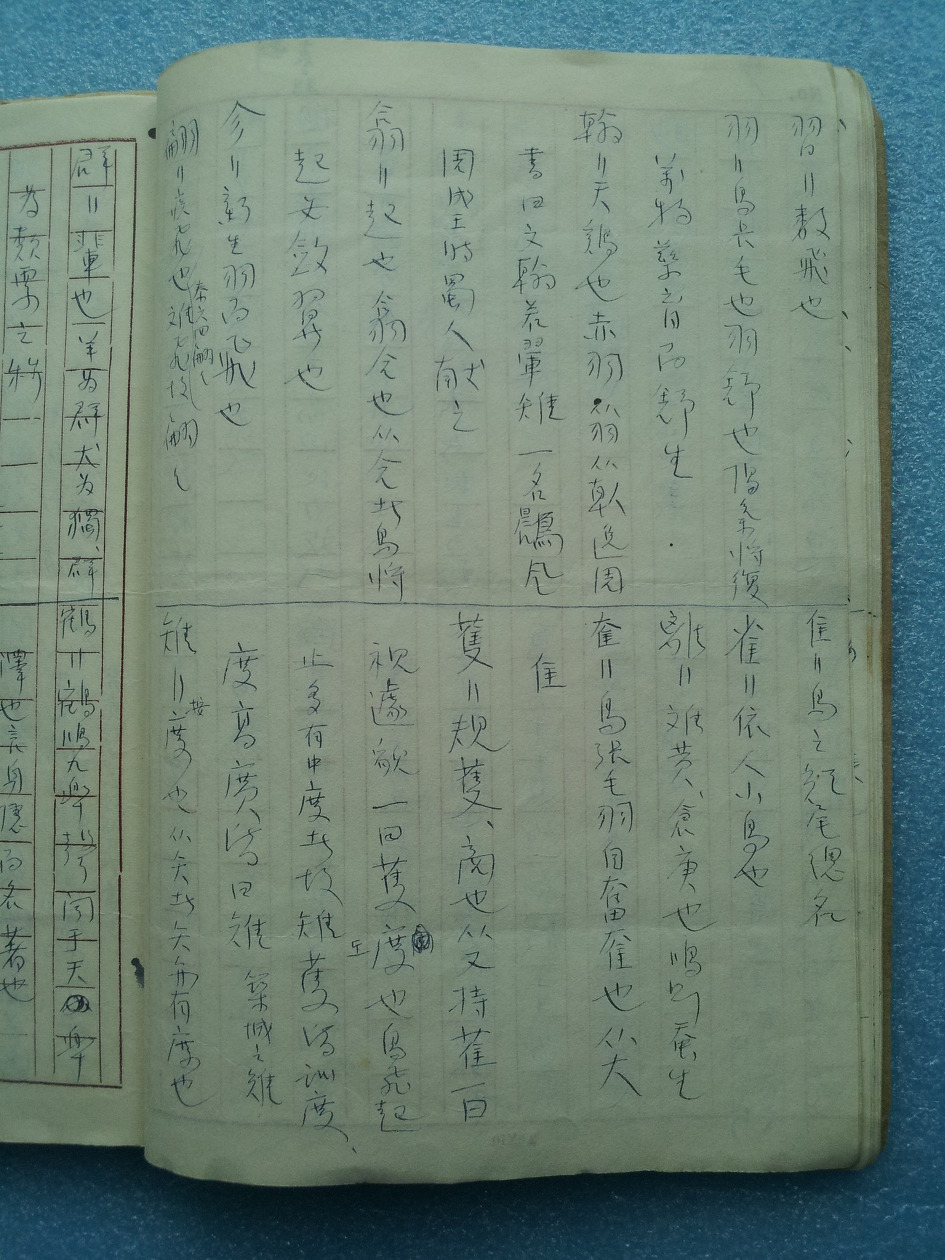 習〃数飛也
羽〃鳥長毛也羽舒也陽气将復
万物孳育而舒生
翰〃天鶏也赤羽从羽从倝逸周
書曰文翰若翬雉一名鷐風
周成王時蜀人献之
翕〃起也翕合也从合者鳥将
起必斂羽翼也
㐱〃新生羽而飞也
翩〃疾飛也
隹〃鳥之短尾總名
雀〃依人小鳥也
離〃離黄、倉庚也鳴則蚕生
奮〃鳥張毛羽自奮奞也从大
隹
蒦〃規蒦、商也从又持萑一曰
視遽皃一曰蒦度也鳥飛起
止多有中度者故雉蒦得訓度、
度高廣得曰雉 築城之雉
雉〃度也从矢者矢有度也
群〃輩也羊为群犬为獨、群
为類聚之称
鶴〃鶴鳴九皋聲聞于天 皋
澤也言身隱而名著也